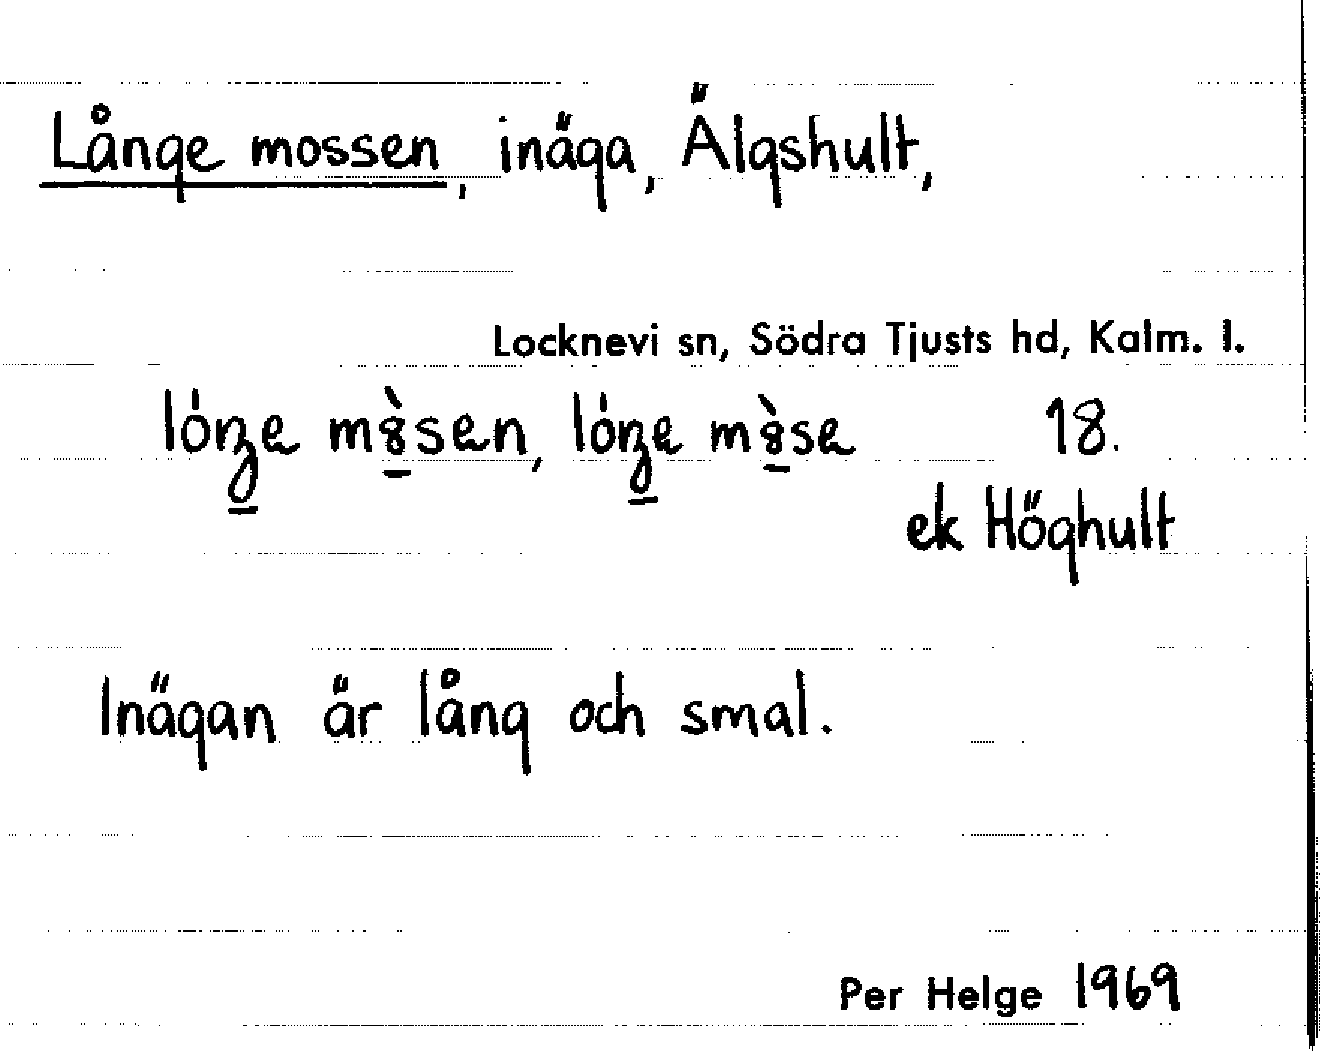 Långe mossen, inäga, Älgshult,
Locknevi sn, Södra Tjusts hd, Kalm. l.
18.
ek Höghult
Inägan är lång och smal.
Per Helge 1969